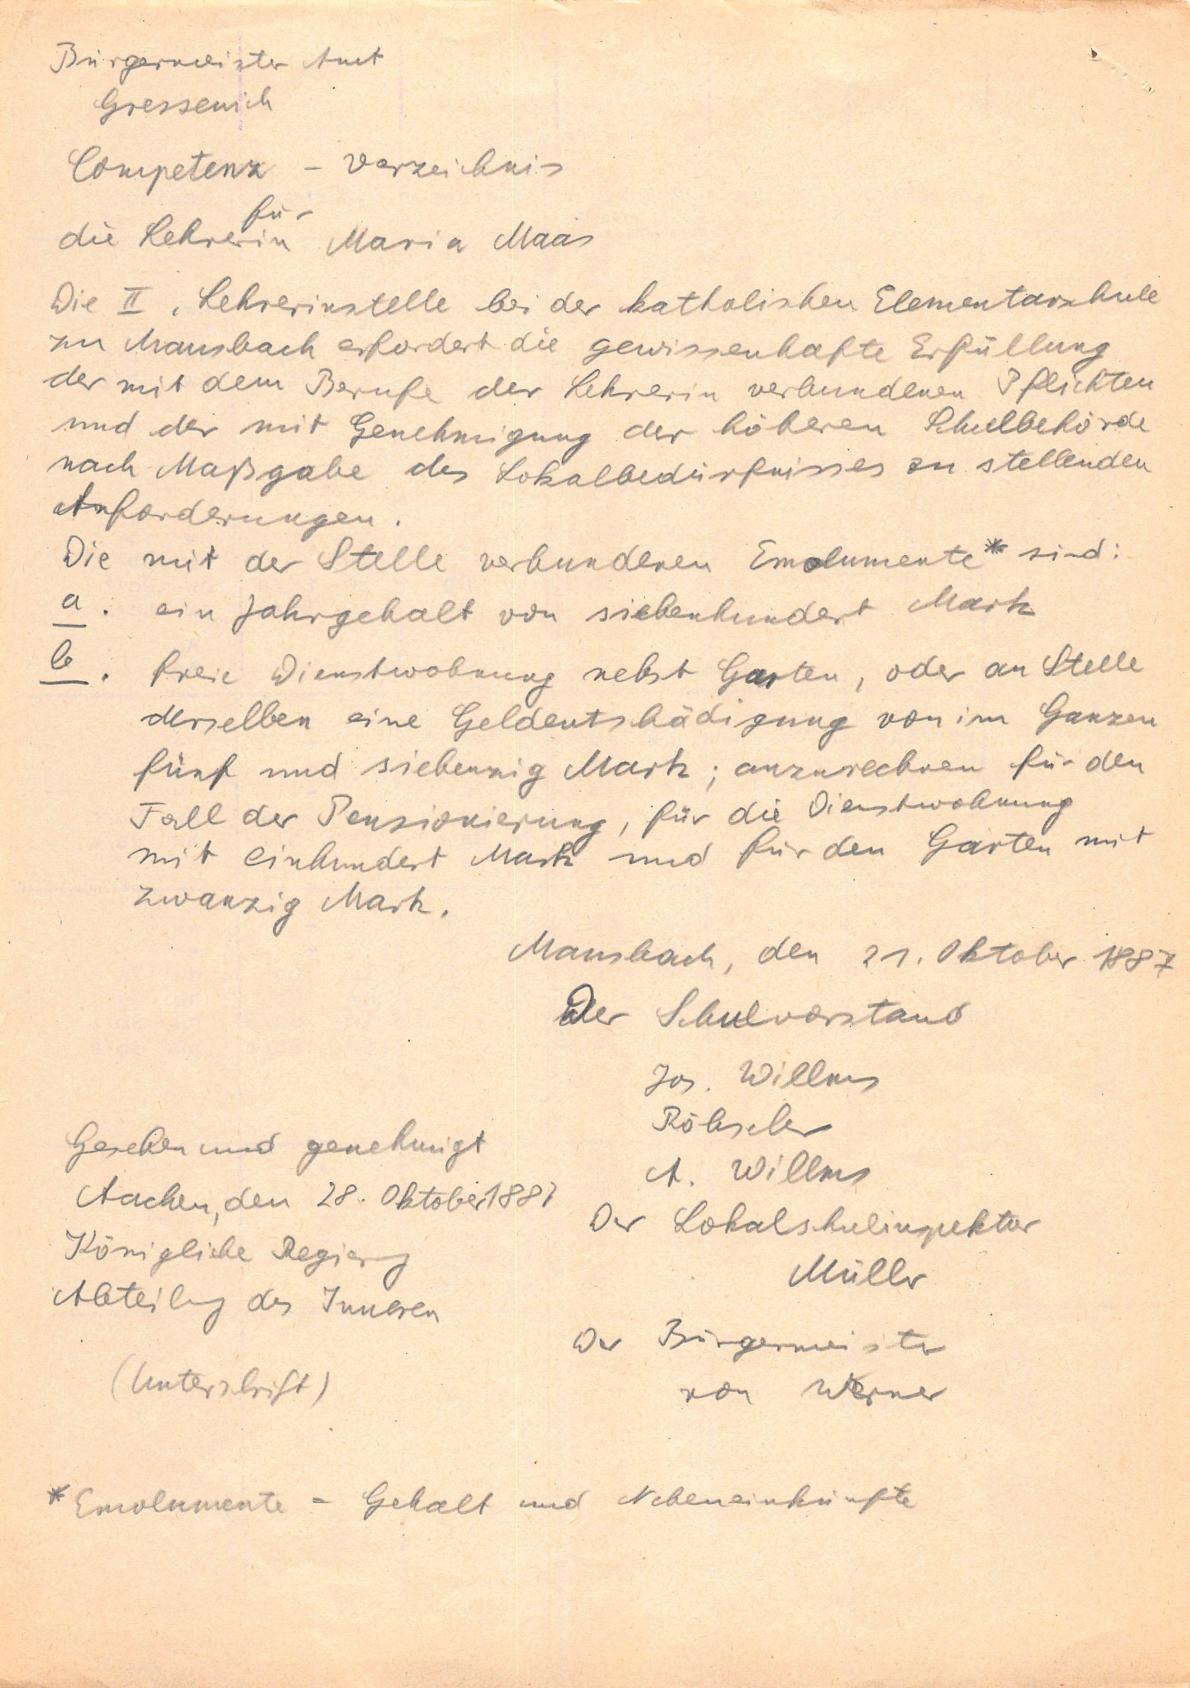 Bürgermeister Amt
Gressenich
Competenz - Verzeichnis
für
die Lehrerin Maria Maas
Die II. Lehrerinstelle bei der katholischen Elementarschule
zu Mausbach erfordert die gewissenhafte Erfüllung
der mit dem Berufe der Lehrerin verbundenen Pflichten
und der mit Genehmigung der höheren Schulbehörde
nach Maßgabe des Lokalbedürfnisses zu stellenden
Anforderungen.
Die mit der Stelle verbundenen Emolumente* sind:
a. ein Jahrgehalt von siebenhundert Mark
b. freie Dienstwohnung nebst Garten, oder an Stelle
derselben eine Geldentschädigung von im Ganzen
fünf und siebenzig Mark; anzurechnen für den
Fall der Pensionierung, für die Dienstwohnung
mit einhundert Mark und für den Garten mit
zwanzig Mark.
Mausbach, den 21. Oktober 1887
Der Schulvorstand
Jos. Willms
Röhscher
A. Willms
Der Lokalschulinspektor
Müller
Der Bürgermeister
von Werner
Gesehen und genehmigt
Aachen, den 28. Oktober 1887
Königliche Regierung
Abteilung des Inneren
(Unterschrift)
* Emolumente = Gehalt und Nebeneinkünfte